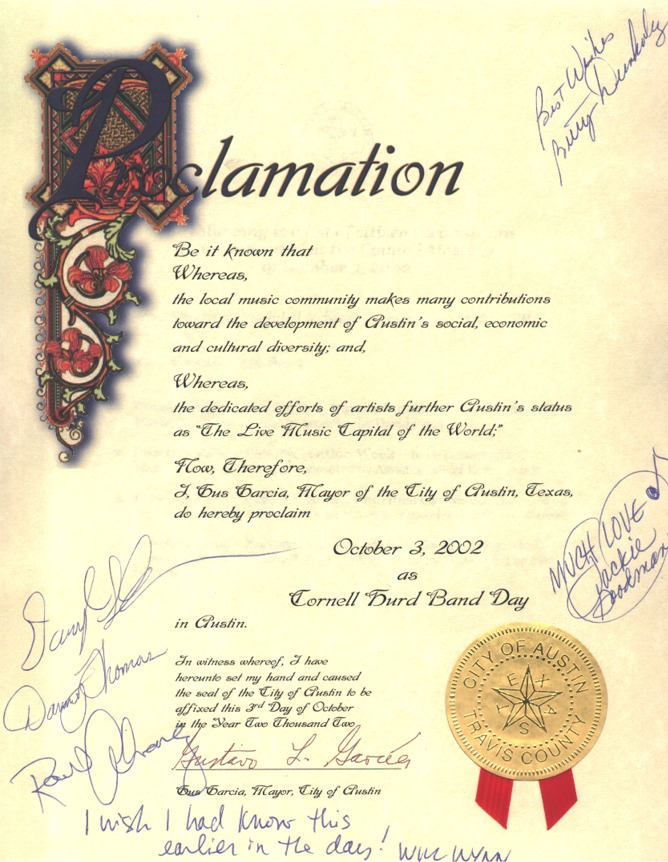 Best Wishes
Betty Dunkerley
Proclamation
Be it known that
Whereas,
the local music community makes many contributions
toward the development of Austin's social, economic
and cultural diversity; and,
Whereas,
the dedicated efforts of artists further Austin's status
as "The Live Music Capital of the World;"
Now, Therefore,
I, Gus Garcia, Mayor of the City of Austin, Texas,
do hereby proclaim
October 3, 2002
as
Cornell Hurd Band Day
in Austin.
MUCH LOVE
Jackie
Goodman
In witness whereof, I have
hereunto set my hand and caused
the seal of the City of Austin to be
affixed this 3rd Day of October
in the Year Two Thousand Two
Gustavo L. Garcia
Gus Garcia, Mayor, City of Austin
CITY OF AUSTIN
TEXAS
TRAVIS COUNTY
Daryl
Danny Thomas
Raul Alvarez
I wish I had know this
earlier in the day! Will Wynn